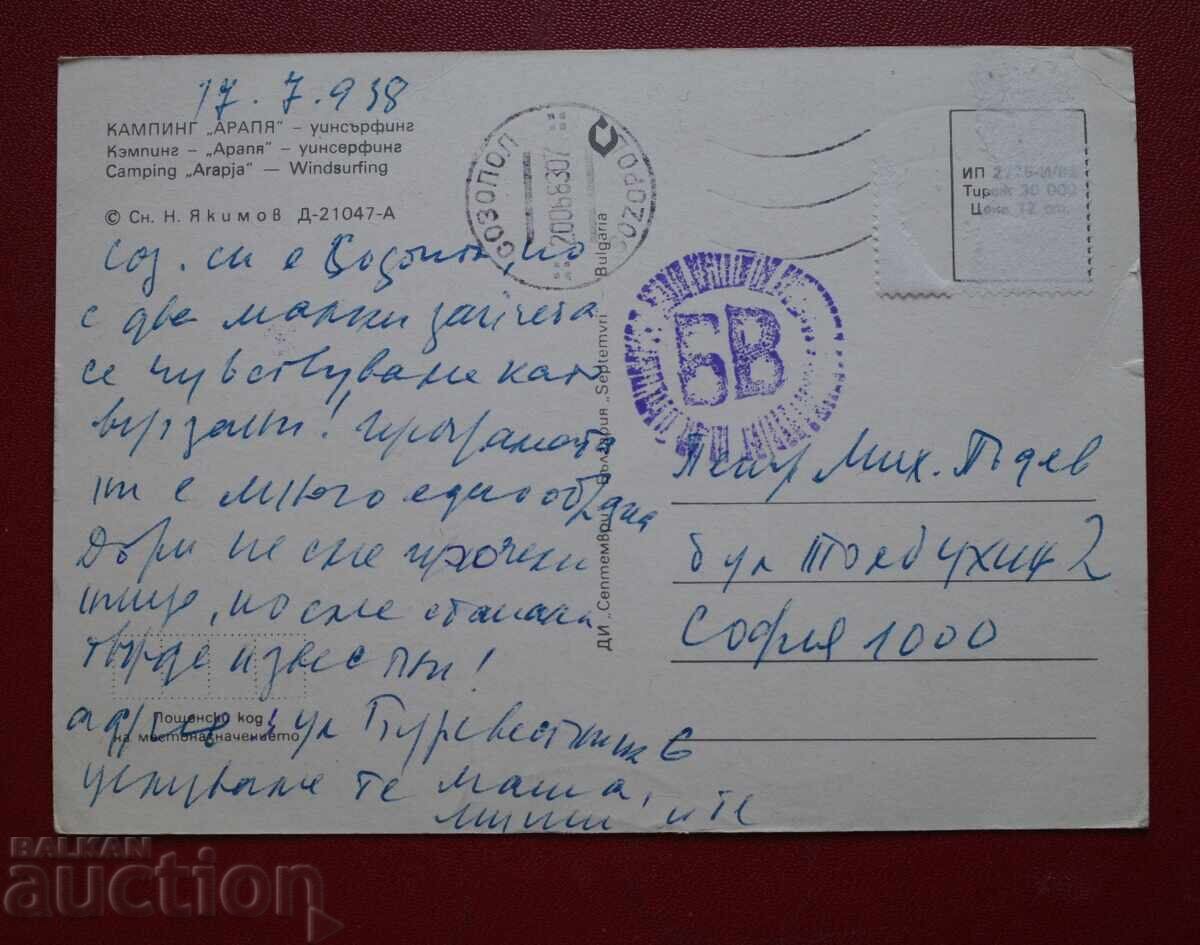 17.7.938
КАМПИНГ „АРАПЯ“ – уинсърфинг
Кэмпинг – „Арапя“ – уинсерфинг
Camping „Arapja“ — Windsurfing
© Сн. Н. Якимов Д-21047-А
Соз. си е но
с две малки зайчета
се чувстваме като
вързани! Програмата
ни е много еднообразна
Дори не сме прочели
нищо, но сме станали
твърде известни!
Пощенски код
на местоназначението
адрес: ул Буревестник 6
целуваме те Маша,
ДИ „Септември“ България „Septemvri“ – Bulgaria
СОЗОПОЛ
SOZOPOL
БВ
ИП
Тираж 30 000
Цена 12 ст.
Петър Мих. Гъдев
бул Толбухин 2
София 1000
BALKAN
auction